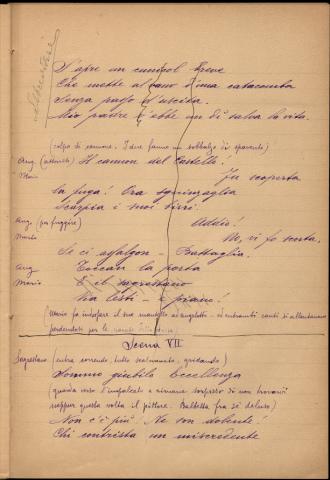 S'apre un cunicol breve
Che mette al cavo d'ima catacomba
Senza passo d'uscita.
Mio padre v'ebbe un dì salva la vita.
(colpo di cannone. I due fanno un sobbalzo di spavento)
Ang. (atterrito) Il cannon del Castello!
Mario Fu scoperta
la fuga! Ora sguinzaglia
Scarpia i suoi sbirri.
Ang. (per fuggire) Addio!
Mario No, vi fo scorta.
Se ci assalgon - Battaglia.
Ang. Toccan la porta
Mario È il sagrestano
Via lesti - e piano!
(Mario fa indossare il suo mantello ad Angelotti - ed entrambi cauti si allontanano
perdendosi per le navate della chiesa)
Scena VII
Sagrestano (entra correndo, tutto scalmanato, gridando)
Sommo giubilo Eccellenza
(guarda verso l'impalcato e rimane sorpreso di non trovarvi
neppur questa volta il pittore. Balbetta fra sé deluso)
Non c'è più! Ne son dolente!
Chi contrista un miscredente